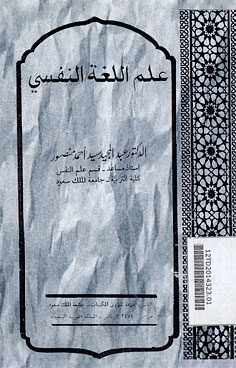 علم اللغة النفسي
الدكتور عبد المجيد سيد أحمد منصور
أستاذ مساعد - قسم علم النفس
كلية التربية - جامعة الملك سعود
الناشر: عمادة شؤون المكتبات - جامعة الملك سعود
الرياض - المملكة العربية السعودية